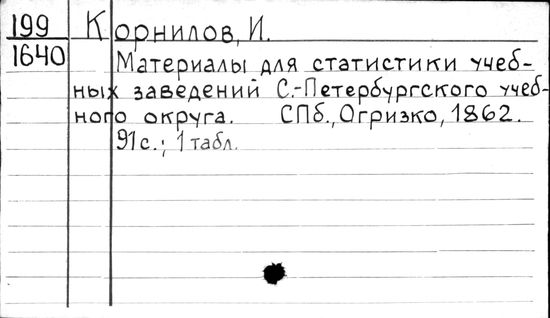 199 Корнилов, И.
1640 Материалы для статистики учеб-
ных заведений С.-Петербургского учеб-
ного округа. СПб., Огризко, 1862.
91с.; 1 табл.